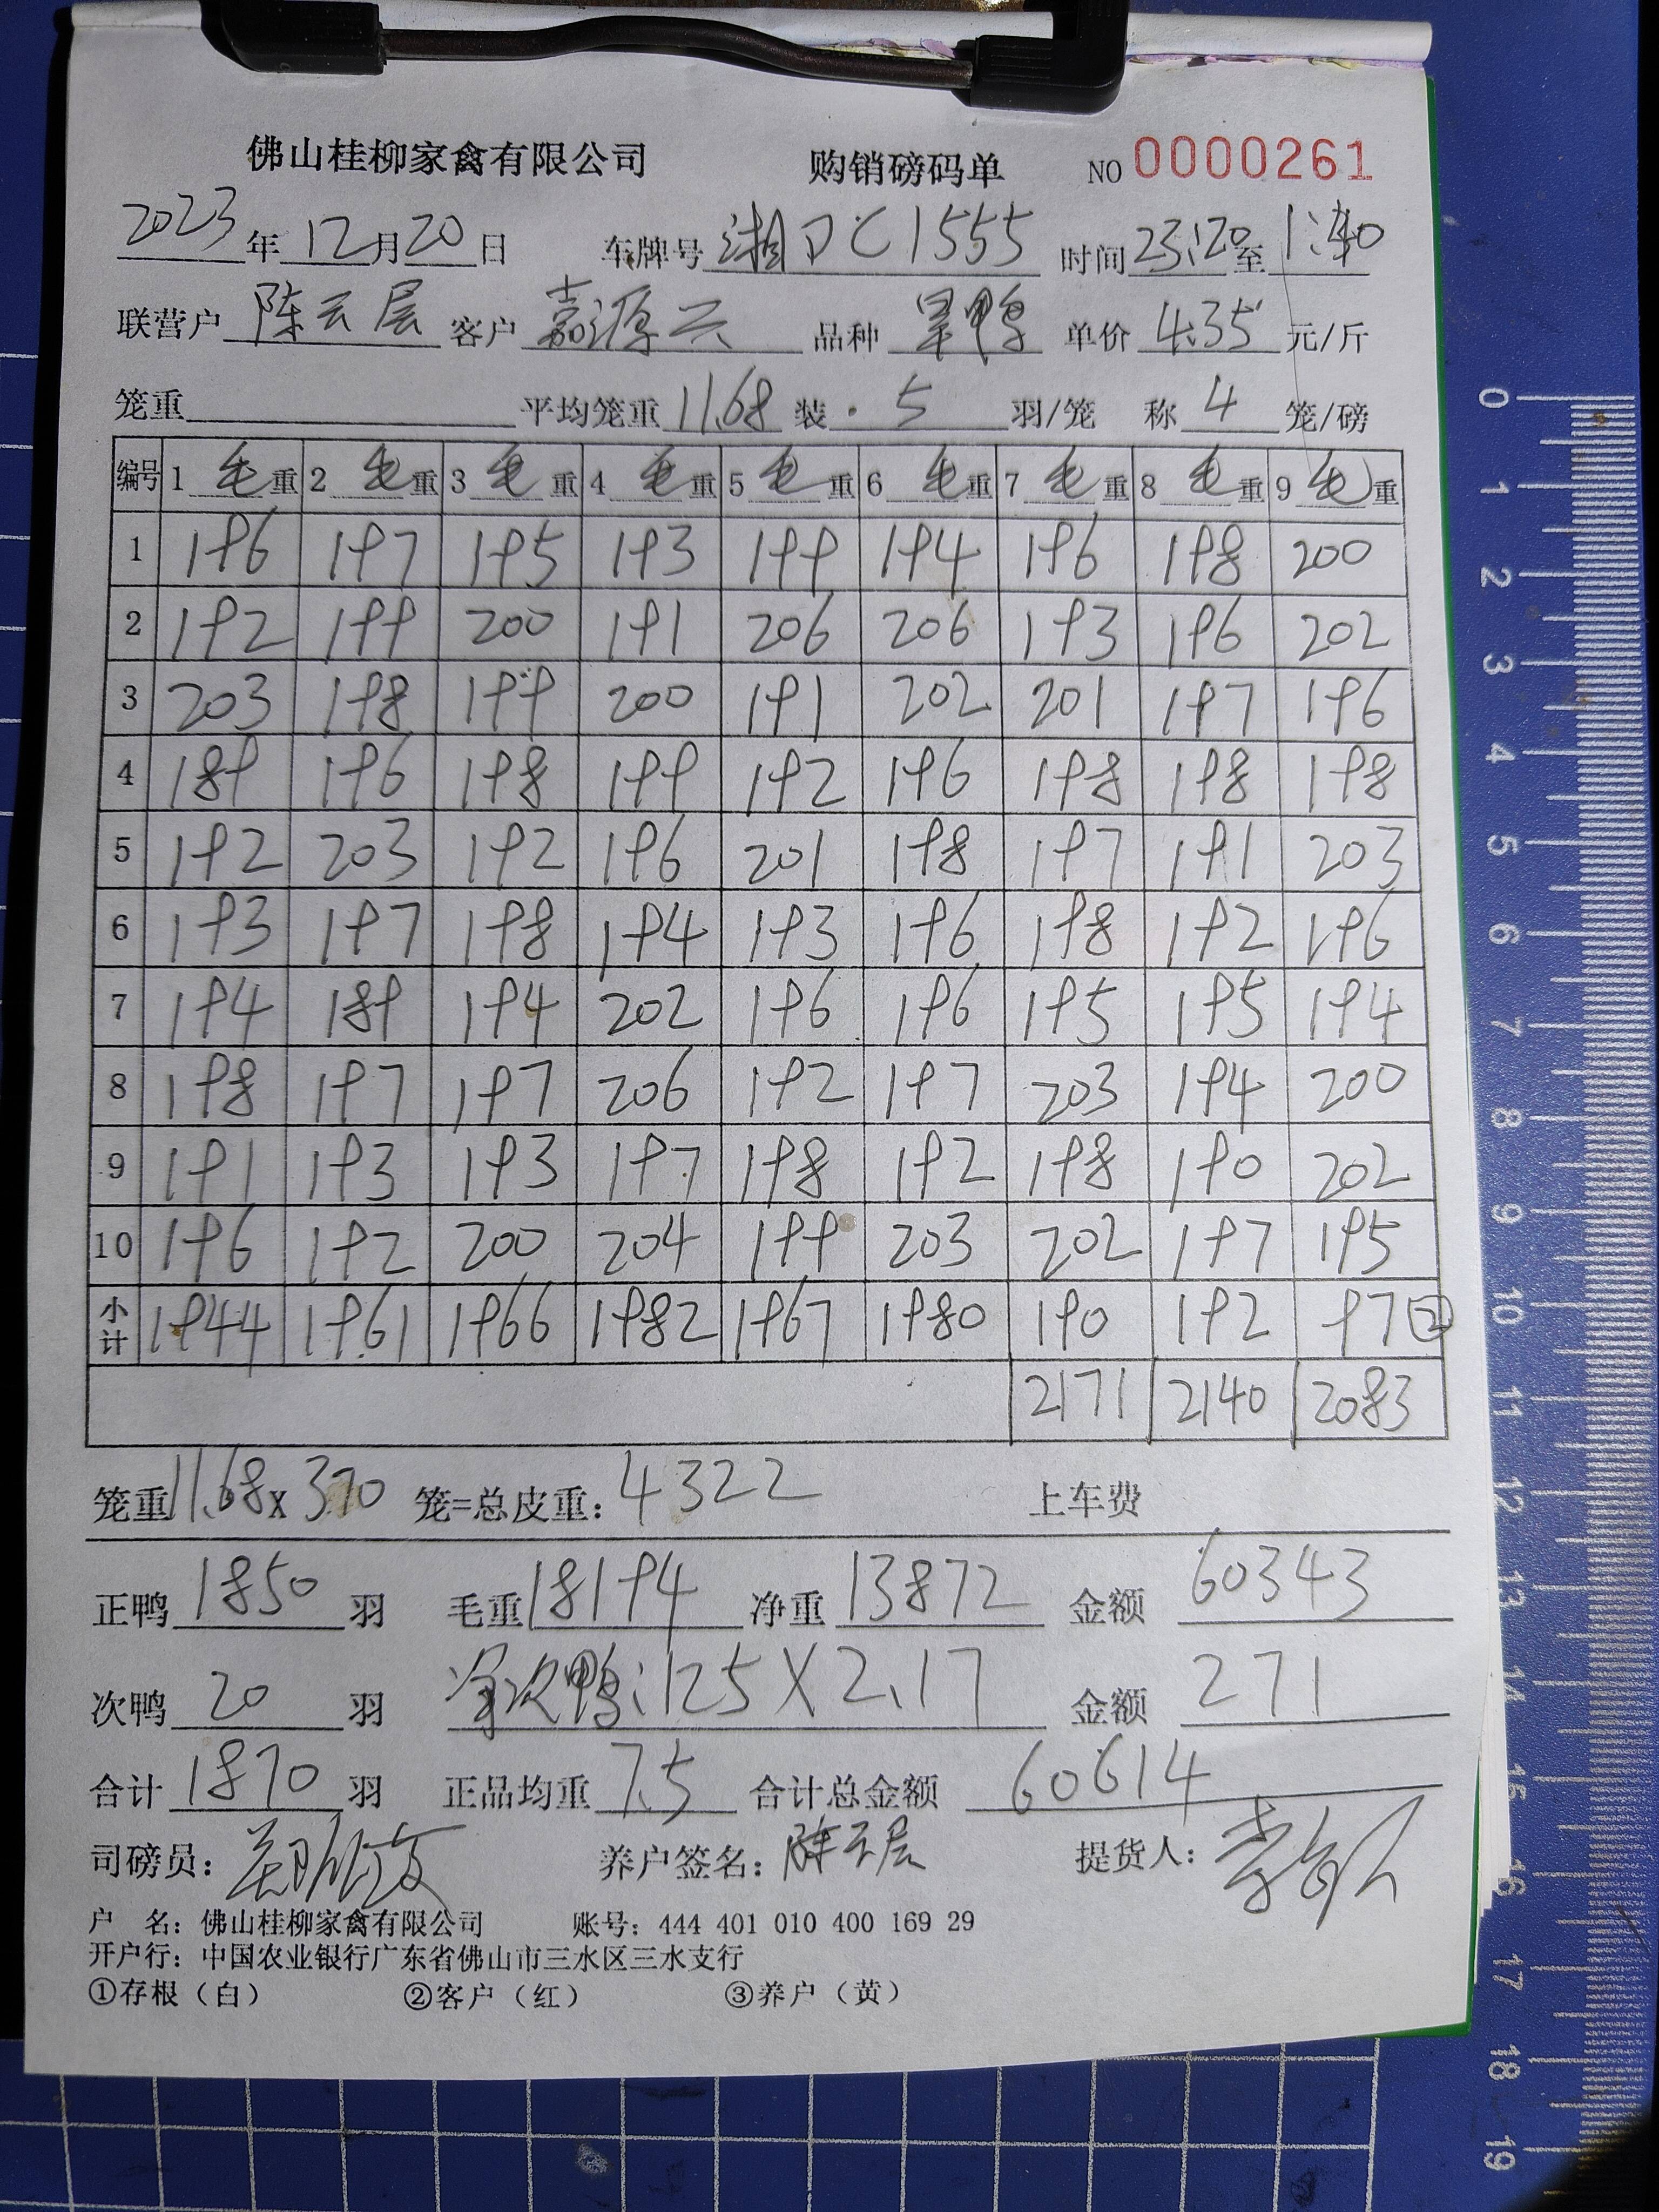 佛山桂柳家禽有限公司 购销磅码单 NO 0000261
2023年12月20日 车牌号 湘DC1555 时间 23:20 至 1:40
联营户 陈云层 客户 嘉源兴 品种 旱鸭 单价 4.35 元/斤
笼重 平均笼重 11.68 装 5 羽/笼 称 4 笼/磅
编号 1 毛重 2 毛重 3 毛重 4 毛重 5 毛重 6 毛重 7 毛重 8 毛重 9 毛重
1 196 197 195 193 199 194 196 198 200
2 192 199 200 191 206 206 193 196 202
3 203 198 199 200 191 202 201 197 196
4 189 196 198 199 192 196 198 198 198
5 192 203 192 196 201 198 197 191 203
6 193 197 198 194 193 196 198 192 196
7 194 189 194 202 196 196 195 195 194
8 198 197 197 206 192 197 203 194 200
9 191 193 193 197 198 192 198 190 202
10 196 192 200 204 199 203 202 197 195
小计 1944 1961 1966 1982 1967 1980 190 192 97 ②
2171 2140 2083
笼重 11.68 X 370 笼=总皮重: 4322 上车费
正鸭 1850 羽 毛重 18194 净重 13872 金额 60343
次鸭 20 羽 次鸭: 125 X 2.17 金额 271
合计 1870 羽 正品均重 7.5 合计总金额 60614
司磅员: 养户签名: 陈云层 提货人:
户 名: 佛山桂柳家禽有限公司 账号: 444 401 010 400 169 29
开户行: 中国农业银行广东省佛山市三水区三水支行
①存根（白） ②客户（红） ③养户（黄）
0 1 2 3 4 5 6 7 8 9 10 11 12 13 14 15 16 17 18 19